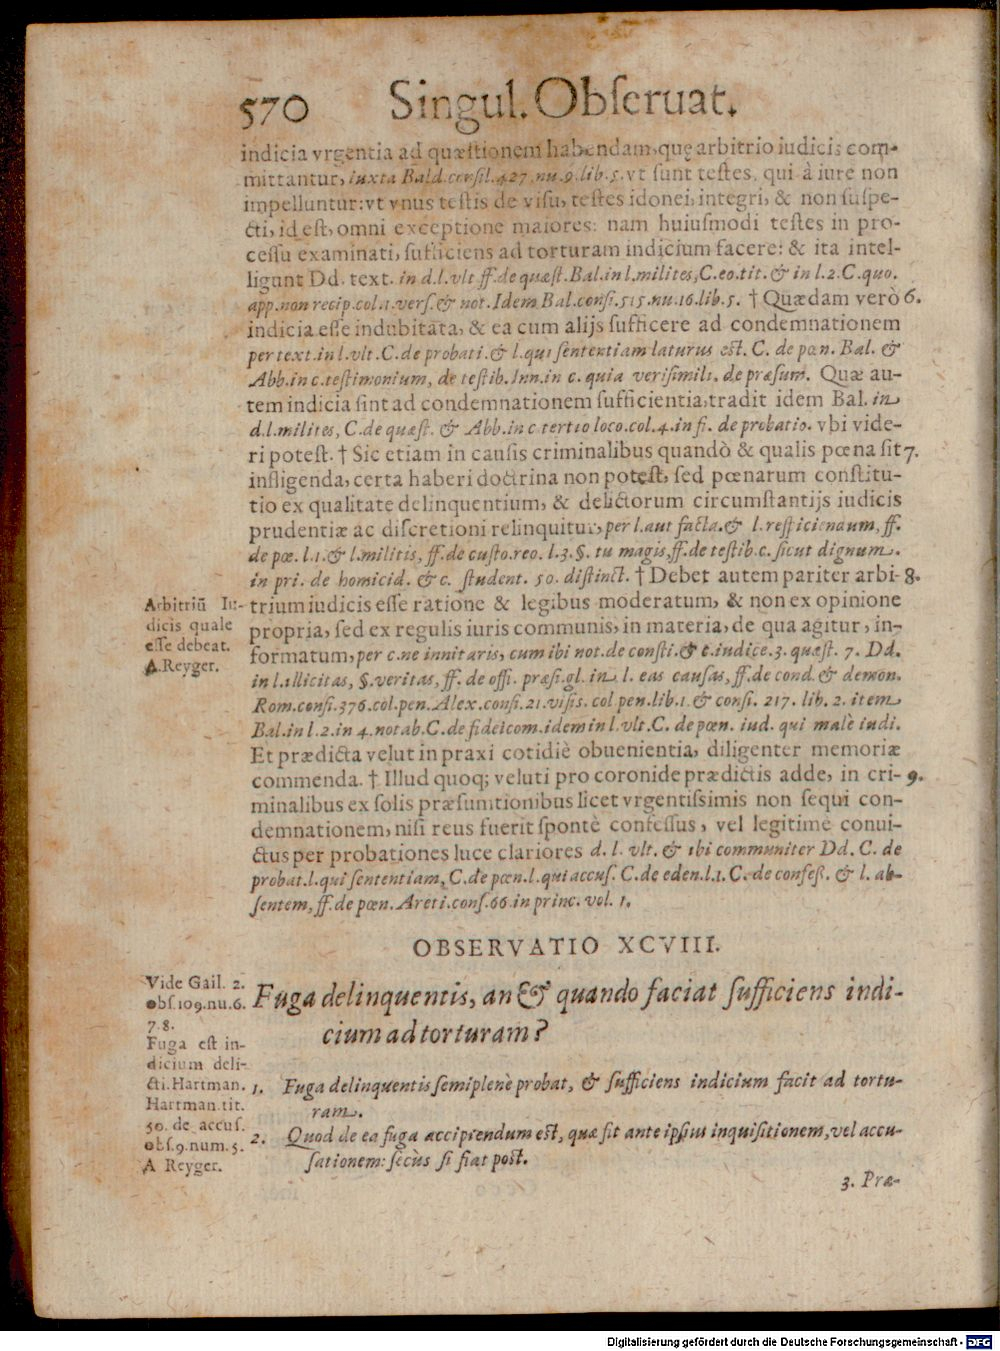 570 Singul. Obſeruat.
indicia vrgentia ad quæſtionem habendam, quę arbitrio iudicis com-
mittantur, iuxta Bald. conſil. 427. nu. 9. lib. 5. vt ſunt teſtes, qui à iure non
impelluntur: vt vnus teſtis de viſu, teſtes idonei, integri, & non ſuſpe-
cti, id eſt, omni exceptione maiores: nam huiuſmodi teſtes in pro-
ceſſu examinati, ſufficiens ad torturam indicium facere: & ita intel-
ligunt Dd. text. in d. l. vlt ff. de quæſt. Bal. in l. milites, C. eo. tit. & in l. 2. C. quo.
app. non recip. col. 1. verſ. & not. Idem Bal. conſi. 515. nu. 16. lib. 5. † Quædam verò 6.
indicia eſſe indubitata, & ea cum alijs ſufficere ad condemnationem
per text. in l. vlt. C. de probati. & l. qui ſententiam laturus eſt. C. de pœn. Bal. &
Abb. in c. teſtimonium, de teſtib. Inn. in c. quia veriſimili. de præſum. Quæ au-
tem indicia ſint ad condemnationem ſufficientia, tradit idem Bal. in
d. l. milites, C. de quæſt. & Abb. in c tertio loco. col. 4. in fi. de probatio. vbi vide-
ri poteſt. † Sic etiam in cauſis criminalibus quandò & qualis pœna ſit 7.
infligenda, certa haberi doctrina non poteſt, ſed pœnarum conſtitu-
tio ex qualitate delinquentium, & delictorum circumſtantijs iudicis
prudentiæ ac diſcretioni relinquitur, per l. aut facta. & l. reſpiciendum, ff.
de pœ. l. 1. & l. militis, ff. de cuſto. reo. l. 3. §. tu magis, ff. de teſtib. c. ſicut dignum.
in pri. de homicid. & c. ſtudent. 50. diſtinct. † Debet autem pariter arbi- 8.
Arbitriũ Iu-
dicis quale
eſſe debeat.
A Reyger.
trium iudicis eſſe ratione & legibus moderatum, & non ex opinione
propria, ſed ex regulis iuris communis, in materia, de qua agitur, in-
formatum, per c. ne innitaris, cum ibi not. de conſti. & c. iudice. 3. quæſt. 7. Dd.
in l. illicitas, §. veritas, ff. de offi. præſi. gl. in l. eas cauſas, ff. de cond. & demon.
Rom. conſi. 376. col. pen. Alex. conſi. 21. viſis. col pen. lib. 1. & conſi. 217. lib. 2. item
Bal. in l. 2. in 4. notab. C. de fideicom. idem in l. vlt. C. de pœn. iud. qui malè iudi.
Et prædicta velut in praxi cotidiè obuenientia, diligenter memoriæ
commenda. † Illud quoq; veluti pro coronide prædictis adde, in cri- 9.
minalibus ex ſolis præſumtionibus licet vrgentiſſimis non ſequi con-
demnationem, niſi reus fuerit ſpontè confeſſus, vel legitimè conui-
ctus per probationes luce clariores d. l. vlt. & ibi communiter Dd. C. de
probat. l. qui ſententiam, C. de pœn. l. qui accuſ. C. de eden. l. 1. C. de confeſſ. & l. ab-
ſentem, ff. de pœn. Areti. conſ. 66. in princ. vol. 1.
OBSERVATIO XCVIII.
Vide Gail. 2.
obſ. 109. nu. 6.
7 8.
Fuga eſt in-
dicium deli-
cti. Hartman.
Hartman tit.
50. de accuſ.
obſ. 9. num. 5.
A Reyger.
Fuga delinquentis, an & quando faciat ſufficiens indi-
cium ad torturam?
1. Fuga delinquentis ſemiplenè probat, & ſufficiens indicium facit ad tortu-
ram.
2. Quod de ea fuga accipiendum eſt, quæ fit ante ipſius inquiſitionem, vel accu-
ſationem: ſecùs ſi fiat poſt.
3. Præ-
Digitalisierung gefördert durch die Deutsche Forschungsgemeinschaft - DFG